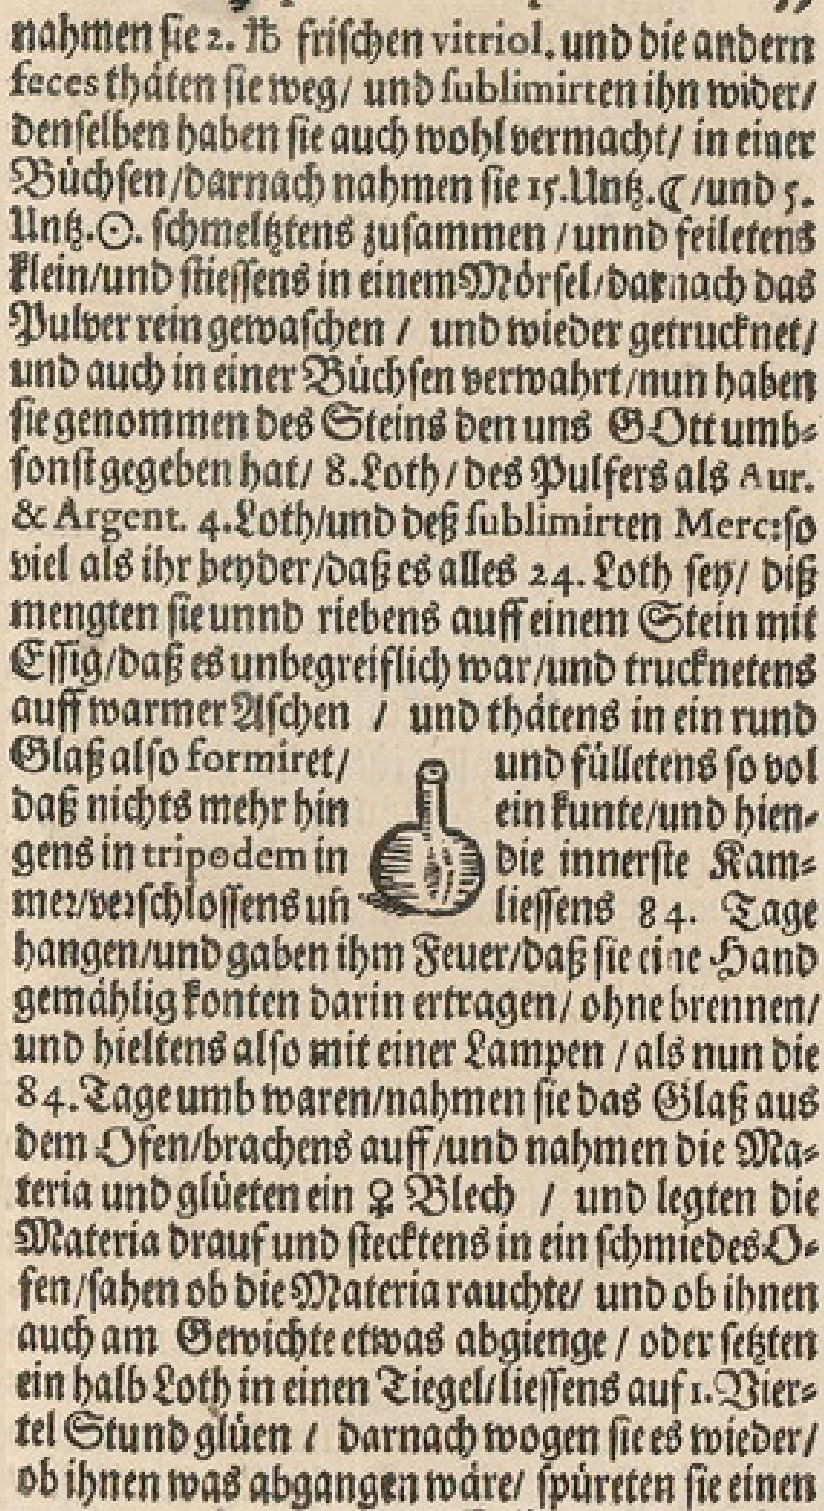 nahmen ſie 2. ℔ friſchen vitriol. und die andern
feces thäten ſie weg/ und ſublimirten ihn wider/
denſelben haben ſie auch wohl vermacht/ in einer
Büchſen/darnach nahmen ſie 15.Untz.☾/und 5.
Untz.☉. ſchmeltztens zuſammen /unnd feiletens
klein/und ſtieſſens in einem Mörſel/darnach das
Pulver rein gewaſchen / und wieder getrucknet/
und auch in einer Büchſen verwahrt/nun haben
ſie genommen des Steins den uns GOtt umb⸗
ſonſt gegeben hat/ 8.Loth/des Pulfers als Aur.
& Argent. 4.Loth/und deß ſublimirten Merc:ſo
viel als ihr beyder/daß es alles 24. Loth ſey/ diß
mengten ſie unnd riebens auff einem Stein mit
Eſſig/daß es unbegreiflich war/und trucknetens
auff warmer Aſchen / und thätens in ein rund
Glaß alſo formiret/ und fülletens ſo vol
daß nichts mehr hin ein kunte/und hien⸗
gens in tripodem in die innerſte Kam⸗
mer/verſchloſſens uñ lieſſens 84. Tage
hangen/und gaben ihm Feuer/daß ſie eine Hand
gemählig konten darin ertragen/ ohne brennen/
und hieltens alſo mit einer Lampen /als nun die
84.Tage umb waren/nahmen ſie das Glaß aus
dem Ofen/brachens auff/und nahmen die Ma⸗
teria und glüeten ein ♀ Blech / und legten die
Materia drauf und ſtecktens in ein ſchmiedes O⸗
fen/ſahen ob die Materia rauchte/ und ob ihnen
auch am Gewichte etwas abgienge / oder ſetzten
ein halb Loth in einen Tiegel/lieſſens auf 1. Vier⸗
tel Stund glüen / darnach wogen ſie es wieder/
ob ihnen was abgangen wäre/ ſpüreten ſie einen